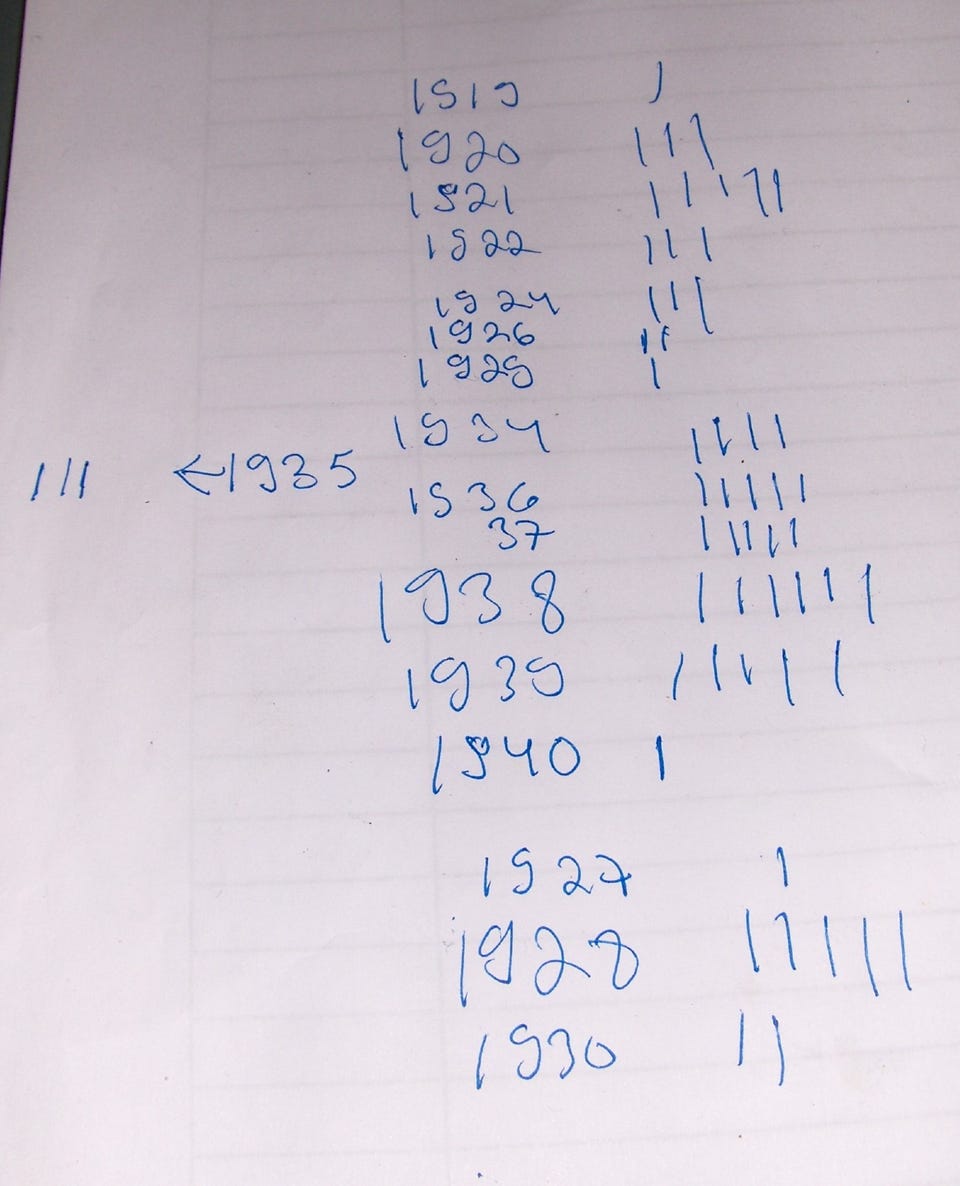 1919 |
1920 |||
1921 |||||
1922 |||
1924 |||
1926 ||
1929 |
1934 ||||
||| ←1935
1936 |||||
37 |||||
1938 ||||||
1939 |||||
1940 |
1927 |
1928 |||||
1930 ||